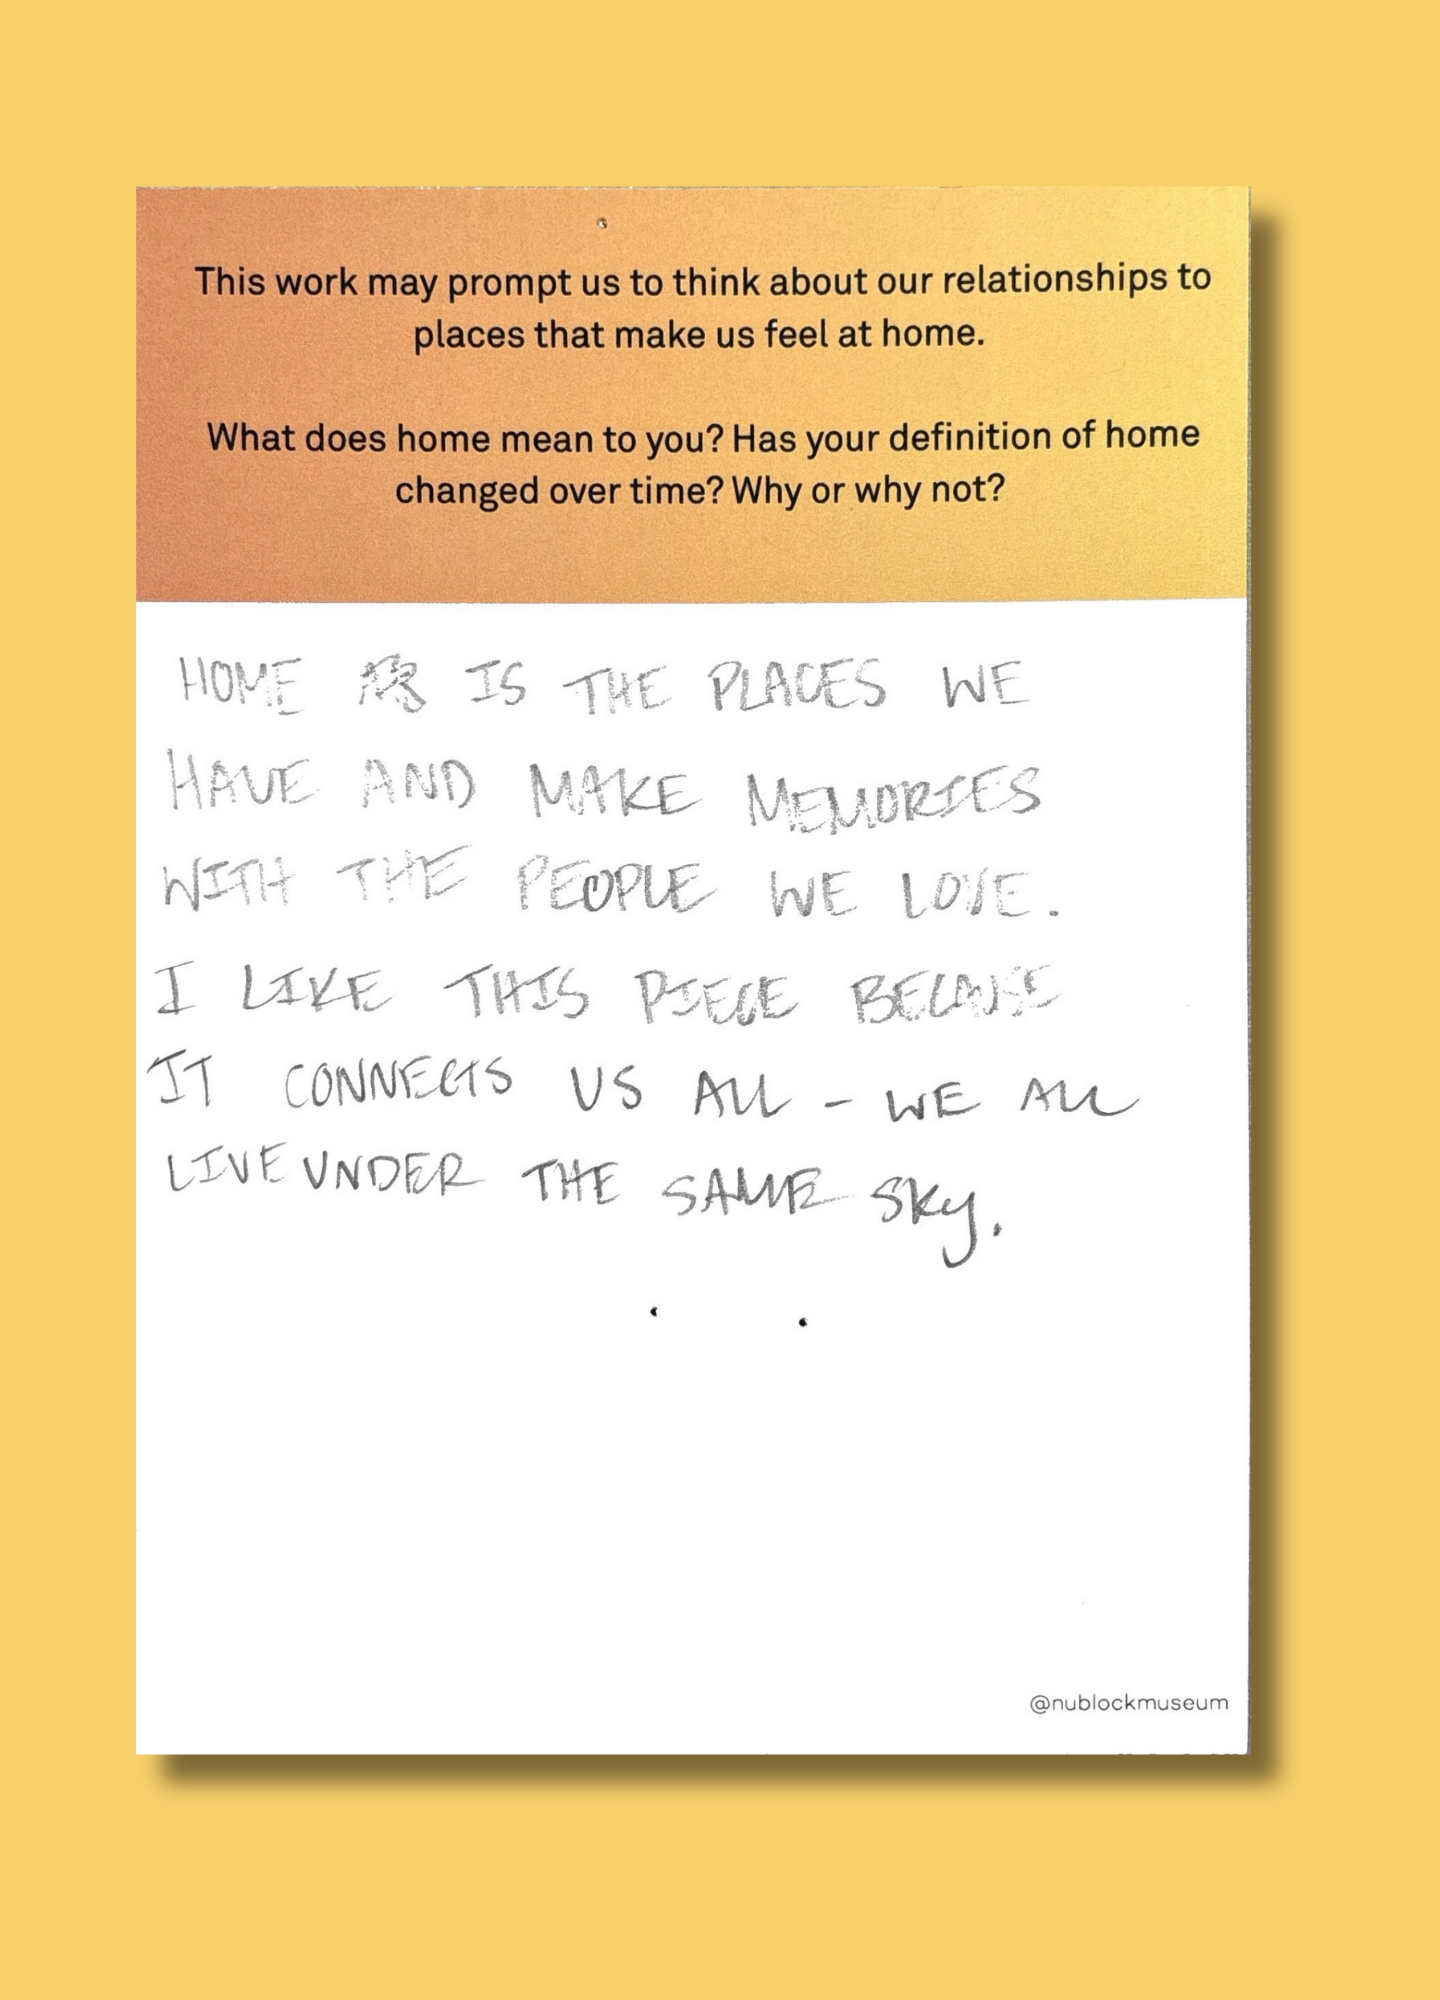 This work may prompt us to think about our relationships to
places that make us feel at home.
What does home mean to you? Has your definition of home
changed over time? Why or why not?
HOME IS THE PLACES WE
HAVE AND MAKE MEMORIES
WITH THE PEOPLE WE LOVE.
I LIKE THIS PIECE BECAUSE
IT CONNECTS US ALL - WE ALL
LIVE UNDER THE SAME SKY.
@nublockmuseum